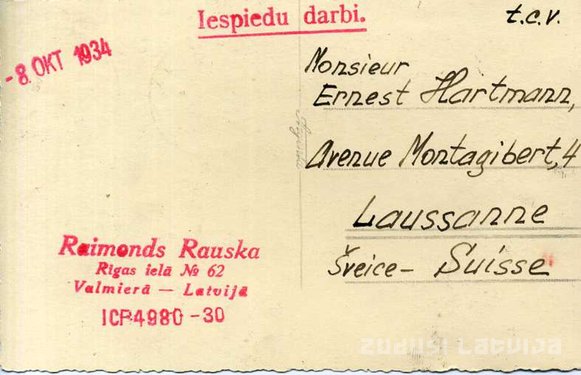 Iespiedu darbi.
t.c.v.
-8. OKT 1934
Monsieur
Ernest Hartmann,
Avenue Montagibert, 4
Laussanne
Šveice - Suisse
Raimonds Rauska
Rīgas ielā № 62
Valmierā — Latvijā
ICP4980 -30
zudusi Latvija